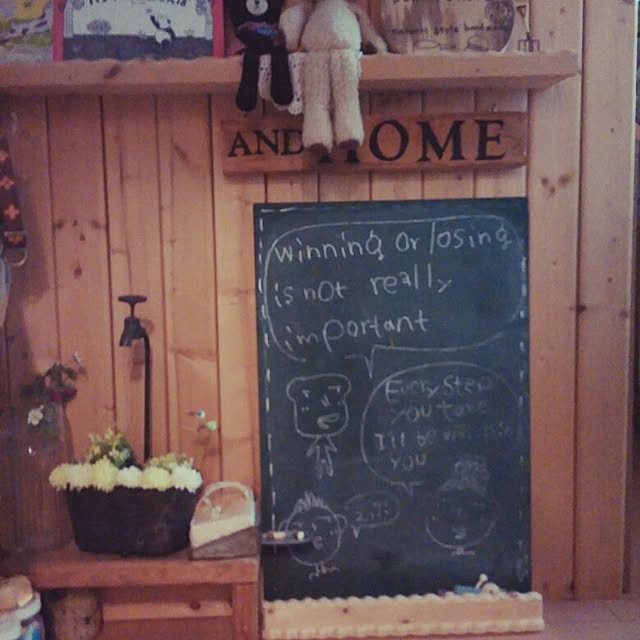 AND HOME
winning or losing
is not really
important
Every Step
you take
I'll be
you